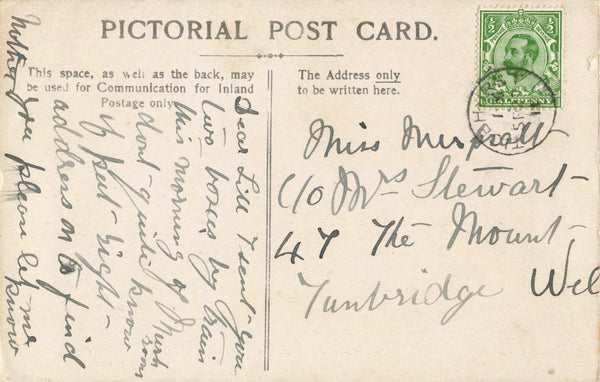 PICTORIAL POST CARD.
This space, as well as the back, may
be used for Communication for Inland
Postage only.
The Address only
to be written here.
½ ½
HALFPENNY
Dear Lill I sent you
two boxes by train
this morning of Mush
rooms
dont quite know
if put right
address on to find
you please let me
know
Mother
Miss
C/O Mrs Stewart
47 The Mount
Tunbridge Wel